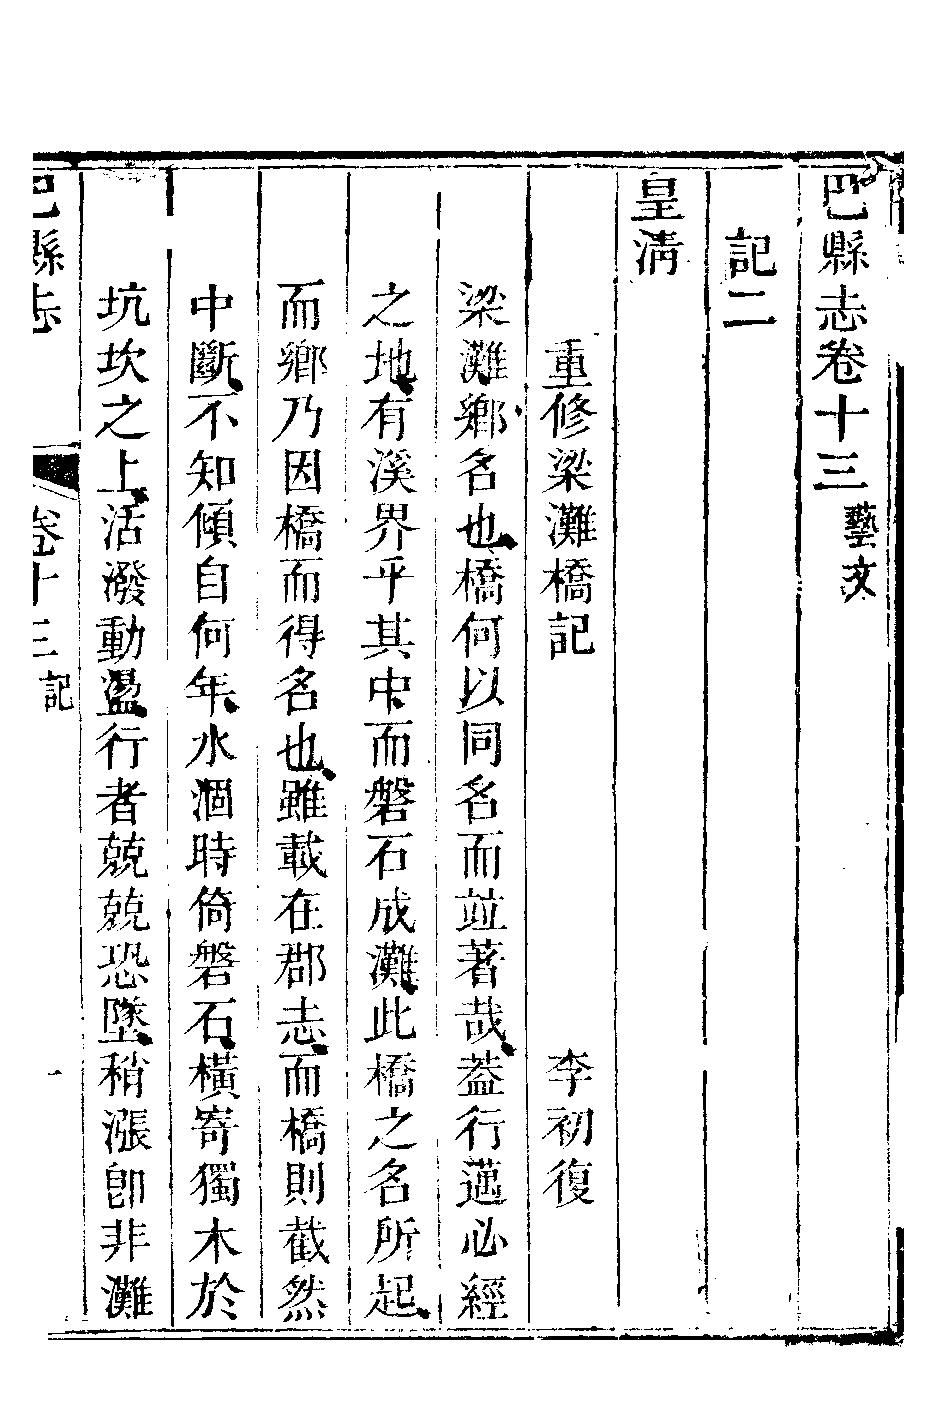 巴縣志卷十三藝文
記二
皇清
重修梁灘橋記李初復
梁灘鄉名也橋何以同名而竝著哉葢行邁必經
之地有溪界乎其中而磐石成灘此橋之名所起
而鄉乃因橋而得名也雖載在郡志而橋則截然
中斷不知傾自何年水涸時倚磐石橫寄獨木於
坑坎之上活潑動盪行者兢兢恐墜稍漲卽非灘
巴縣志卷十三記一